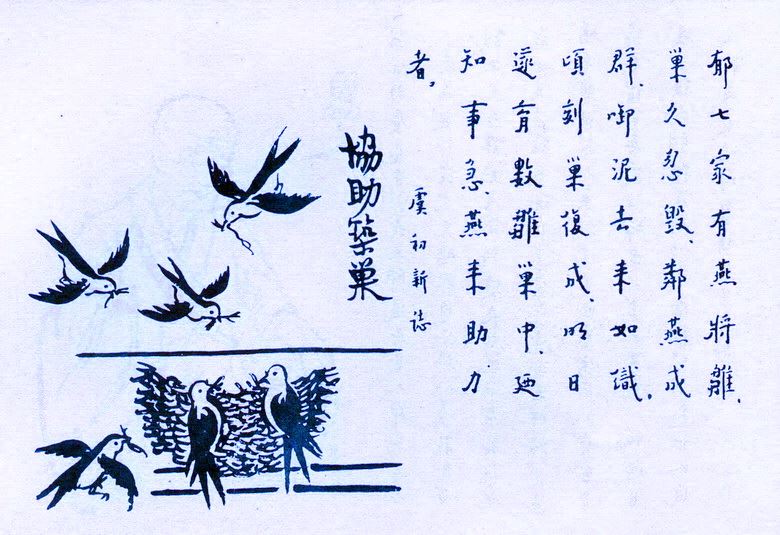 郁七家有燕将雛、
巢久忽毁、鄰燕成
群、啣泥去来如織。
頃刻巢復成、明日
遂育數雛巢中、廼
知事急、燕来助力
者。
虞初新誌
協助築巢